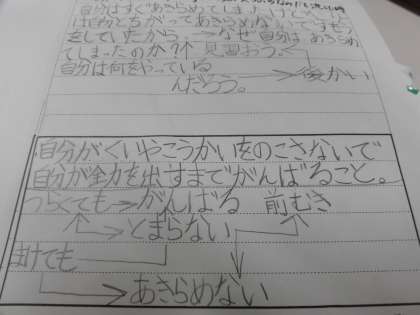 自分はすぐあきらめてしまう
は何とちがってあきらめない
をしていたから。→なぜ自分はあきらめ
てしまったのか?↑見習おう。
自分は何をやっている
んだろう。→後かい
自分がくいやこうかいをのこさないで
自分が全力を出すまでがんばること。
つらくても→がんばる 前むき
→とまらない
まけても
→あきらめない